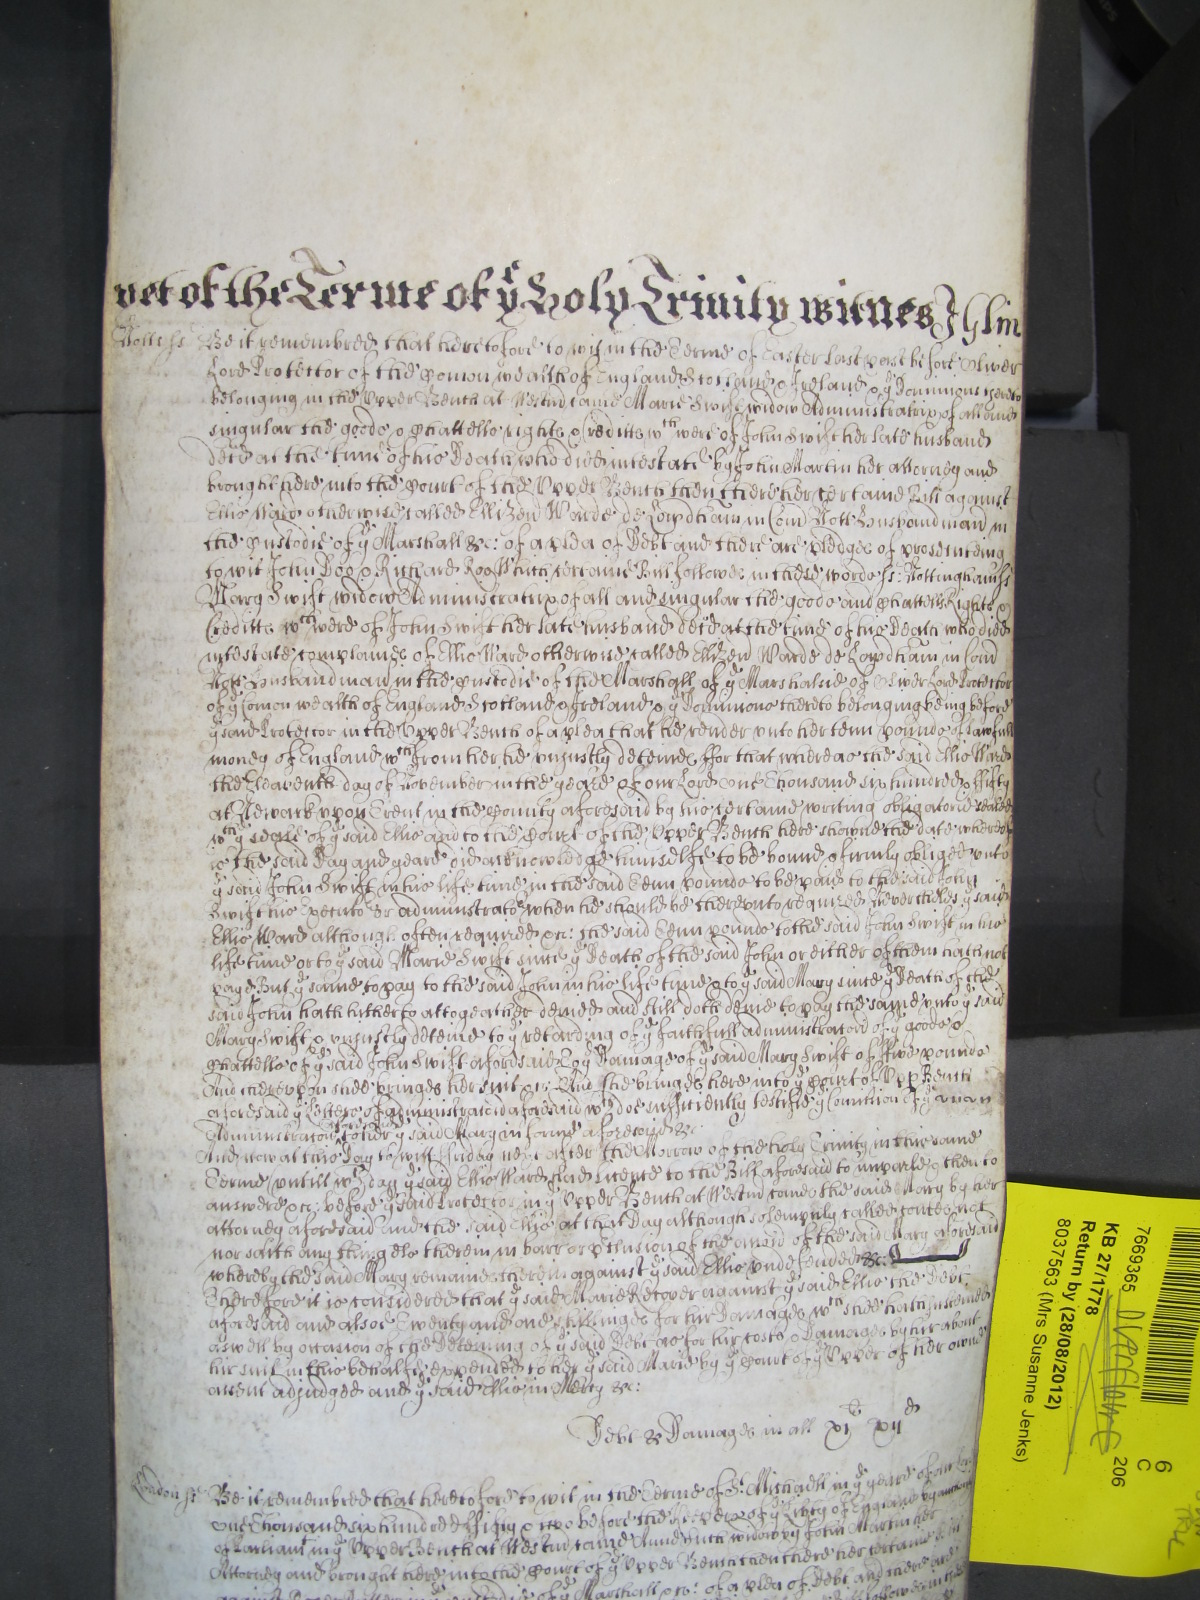 yet of the Terme of ye Holy Trinity witnes John
Notts ss Be it remembred that heretofore to wit in the Terme of Easter last past before Oliver
Lord Protector of the Comon wealth of England Scotland & Ireland & ye Dominions thereto
belonging in the Upper Bench at Westm came Marie Swift widow Administratrix of all and
singular the goods & Chattells rights & Creditts wch were of John Swift her late husband
decd at the time of his Death who died intestate by John Martin her attorney and
brought here into the Court of the Upper Bench then there her certaine Bill against
Ellis Ward otherwise called Ellizen Warde de Lowdham in Com Nott Husbandman in
the Custodie of ye Marshall &c: of a plea of Debt and there are pledges of prosecuting
to wit John Doo & Richard Roo which certaine Bill followes in these words ss: Nottingham ss
Mary Swift widow Administratrix of all and singular the goods and Chattells Rights &
Creditts wch were of John Swift her late husband decd at the time of his Death who died
intestate complaines of Ellis Ward otherwise called Ellizen Warde de Lowdham in Com
Nott Husbandman in the Custodie of the Marshall of ye Marshalsie of Oliver Lord Protector
of ye Comon wealth of England Scotland & Ireland & ye Dominions thereto belonging being before
ye said Protector in the Upper Bench of a plea that he render unto her tenn pounds of lawfull
money of England wch from her he uniustly deteines ffor that whereas the said Ellis Ward
the Eleaventh day of November in the yeare of our Lord one Thousand six hundred & ffifty
at Newark upon Trent in the County aforesaid by his certaine writing obligatorie sealed
wth ye seale of ye said Ellis and to the Court of the Upper Bench here showne the date whereof
is the said Day and yeare did acknowledge himselfe to be bound & firmly obliged unto
ye said John Swift in his life time in the said Tenn pounds to be paid to the said John
Swift his Executors or administrators when he should be thereunto required Neverthelesse ye said
Ellis Ward although often required &c: the said Tenn pounds to the said John Swift in his
life time or to ye said Marie Swift since ye Death of the said John or either of them hath not
payd But ye same to pay to the said John in his life time & to ye said Mary since ye Death of the
said John hath hitherto altogeather denied and still doth denie to pay the same unto ye said
Mary Swift & uniustly deteine to ye retarding of ye faithfull administracon of ye goods &
Chattells of ye said John Swift aforesaid & to ye Damage of ye said Mary Swift of ffive pounds
And thereupon shee bringes her suit &c: And shee bringes here into ye Court of Upp Bench
aforesaid ye Letters of administracon aforesaid wch doe sufficiently testifie ye Comission of ye
Administracon aforesaid to her ye said Mary in forme aforesaid &c:
And now at this Day to wit ffriday next after the Morrow of the Holy Trinity in this same
Terme untill wch day ye said Ellis Ward had Licence to the Bill aforesaid to imparle & then to
answere &c: before ye said Protector in ye Upper Bench at Westm came the said Mary by her
attorney aforesaid And the said Ellis at that Day although solempnly called comes not
nor saith any thing els therein in barr or preclusion of the accon of the said Mary aforesaid
whereby the said Mary remaines therein against ye said Ellis undefended &c:
Therefore it is considered that ye said Marie Recover against ye said Ellis the Debt
aforesaid and alsoe Twenty and one shillinges for her Damages wch shee hath susteined
aswell by occasion of the Deteining of ye said Debt as for her costs & Damages by her about
her suit in this behalfe expended to her ye said Marie by ye Court of ye Upper of her owne
assent adjudged and ye said Ellis in Mercy &c:
Debt & Damages in all xjl xijd
London ss Be it remembred that heretofore to wit in the Terme of St Michaell in ye yeare of our Lord
one Thousand six hundred & ffifty & two before the Keepers of ye Liberty of England by authority
of Parliamt in ye Upper Bench at Westm came Anne widow by John Martin her
Attorney and brought here into the Court of ye Upper Bench then there her certaine
Marshall &c: of a plea of Debt and there are
7669365
6
C
206
KB 27/1778
Return by (28/08/2012)
8037563 (Mrs Susanne Jenks)